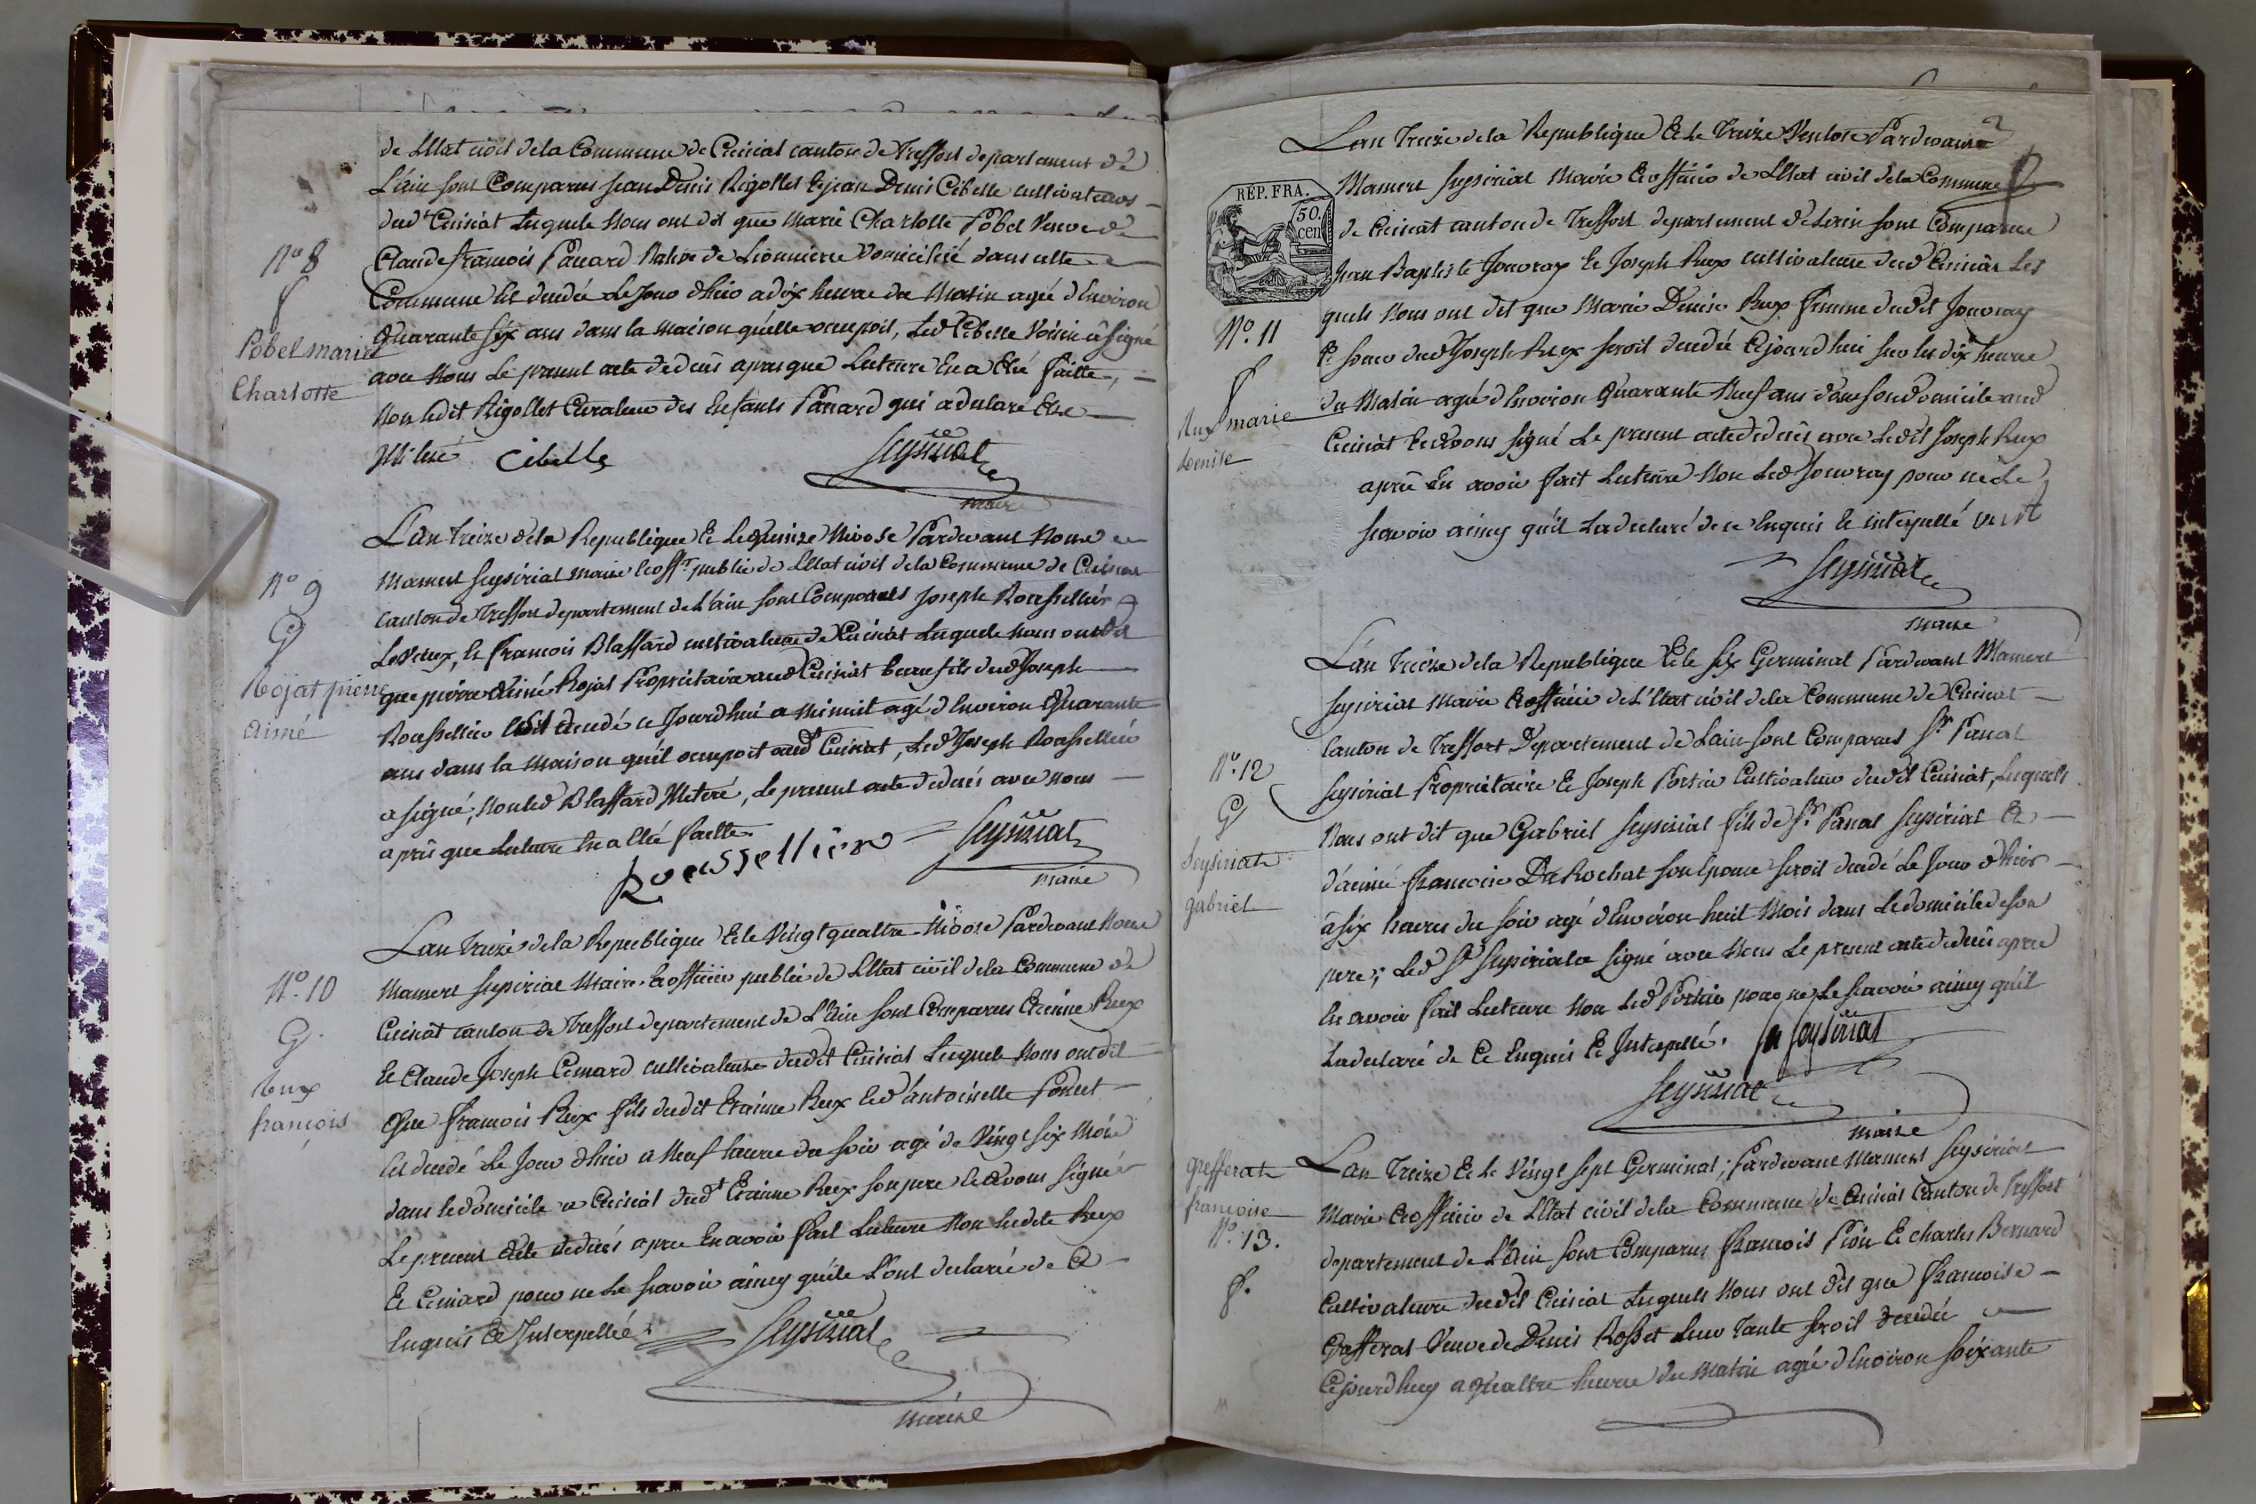 de L'Etat civil de la Commune de Cuisiat canton de Treffort departement de
L'ain sont Comparus Jean Denis Rigollet & jean Denis Cibelle cultivateurs
dud.t Cuisiat Lesquels Nous ont dit que Marie Charlotte Pobel Veuve de
N° 8
Claude françois Panard Native de Domicilié dans cette
f
Commune Est decedée Le Jour d'hier a dix heures du Matin agée d'Environ
Quarante six ans dans la Maison qu'elle occupoit, Led. Cibelle Voisin a signé
Pobel marie
Charlotte
avec Nous Le present acte de deces apres que Lecture En a Eté faitte,
Non Ledit Rigollet Curateur des Enfants Panard qui a declaré Etre
Illiteré Cibelle Seysiriat
maire
L'an treize de la Republique & Le quinze Nivose Pardevant Nous
N° 9
Mamert Seysiriat maire & off.r public de L'Etat civil de la Commune de Cuisiat
G
canton de Treffort departement de L'ain sont Comparus Joseph Rousselliér
Le Vieux, & francois Blassard cultivateur de Cuisiat Lesquels Nous ont dit
Rojat pierre
aimé
que pierre Aimé Rojat Proprietaire aud Cuisiat beaufils dud Joseph
Rousselliér Est decedé ce Jourd'hui a Minuit agé d'Environ Quarante
ans dans la Maison qu'il occupoit aud Cuisiat, Led. Joseph Rousselliér
a signé, Non led Blassard Illiteré, Le present acte de deces avec Nous
aprés que Lecture En a Eté faitte.
Rousselliér Seysiriat
maire
L'an treize de la Republique & le Vingt quattre Nivose Pardevant Nous
N°. 10
Mamert Seysiriat Maire & officier public de L'Etat civil de la Commune de
G.
Cuisiat canton de Treffort departement de L'Ain sont Comparus Etienne Rux
Rux
françois
& Claude Joseph Comard cultivateurs dudit Cuisiat Lesquels Nous ont dit
Que francois Rux fils dudit Etienne Rux & d'antoinette Ponut
Est decedé Le Jour d'hier a Neuf heures du soir agé de Vingt six Mois
dans le domicile a Cuisiat dud.t Etienne Rux son pere & avons signé
Le present acte de deces apres En avoir fait Lecture Non Lesdits Rux
& Comard pour ne Le scavoir ainsy qu'ils L'ont declaré de ce
Enquis & Interpellés. Seysiriat
maire
L'an treize de la Republique & le treize Ventose Pardevant
REP. FRA.
50.
cen
Mamert Seysiriat Maire & officier de L'Etat civil de la Commune
de Cuisiat canton de Treffort departement de L'ain sont Comparus
Jean Baptiste Jouvray & Joseph Rux cultivateurs dud Cuisiat Les
quels Nous ont dit que Marie Denise Rux femme dudit Jouvray
N°. 11
& soeur dud Joseph Rux seroit decedée Cejourd'hui sur les dix heures
f
du Matin agée d'Environ Quarante Neuf ans dans son domicile aud
Rux marie
denise
Cuisiat & avons signé Le present acte de deces avec Ledit Joseph Rux
aprés En avoir fait Lecture Non Led Jouvray pour ne Le
scavoir ainsy qu'il La declaré de ce Enquis & interpellé
Seysiriat
maire
L'an treize de la Republique & le six Germinal Pardevant Mamert
Seysiriat Maire & officier de L'Etat civil de la Commune de Cuisiat
N°. 12
Canton de Treffort Departement de L'ain sont Comparus S.r Pascal
Seysiriat Proprietaire & Joseph Portier Cultivateur dudit Cuisiat, Lesquels
G
Nous ont dit que Gabriel Seysiriat fils de S.r Pascal Seysiriat &
Seysiriat
gabriel
d'aimé francoise DuRochat son Epouse seroit decedé Le Jour d'hier
a six heures du soir agé d'Environ huit Mois dans Le domicile de son
pere; Led S.r Seysiriat a signé avec Nous Le present acte de deces apres
En avoir fait Lecture Non Led Portier pour ne Le scavoir ainsy qu'il
La declaré de Ce Enquis & Interpellé. Seysiriat
Seysiriat
maire
grefferat
françoise
N°. 13.
f.
L'an treize & le Vingt sept Germinal, Pardevant Mamert Seysiriat
Maire & officier de L'Etat civil de la Commune de Cuisiat Canton de Treffort
departement de L'Ain sont Comparus francois Pion & charles Bernard
Cultivateurs dudit Cuisiat Lesquels Nous ont dit que francoise
Grefferat Veuve de Denis Rosset Leur Tante seroit decedée
Cejourd'huy a quattre heures du Matin agée d'Environ soixante